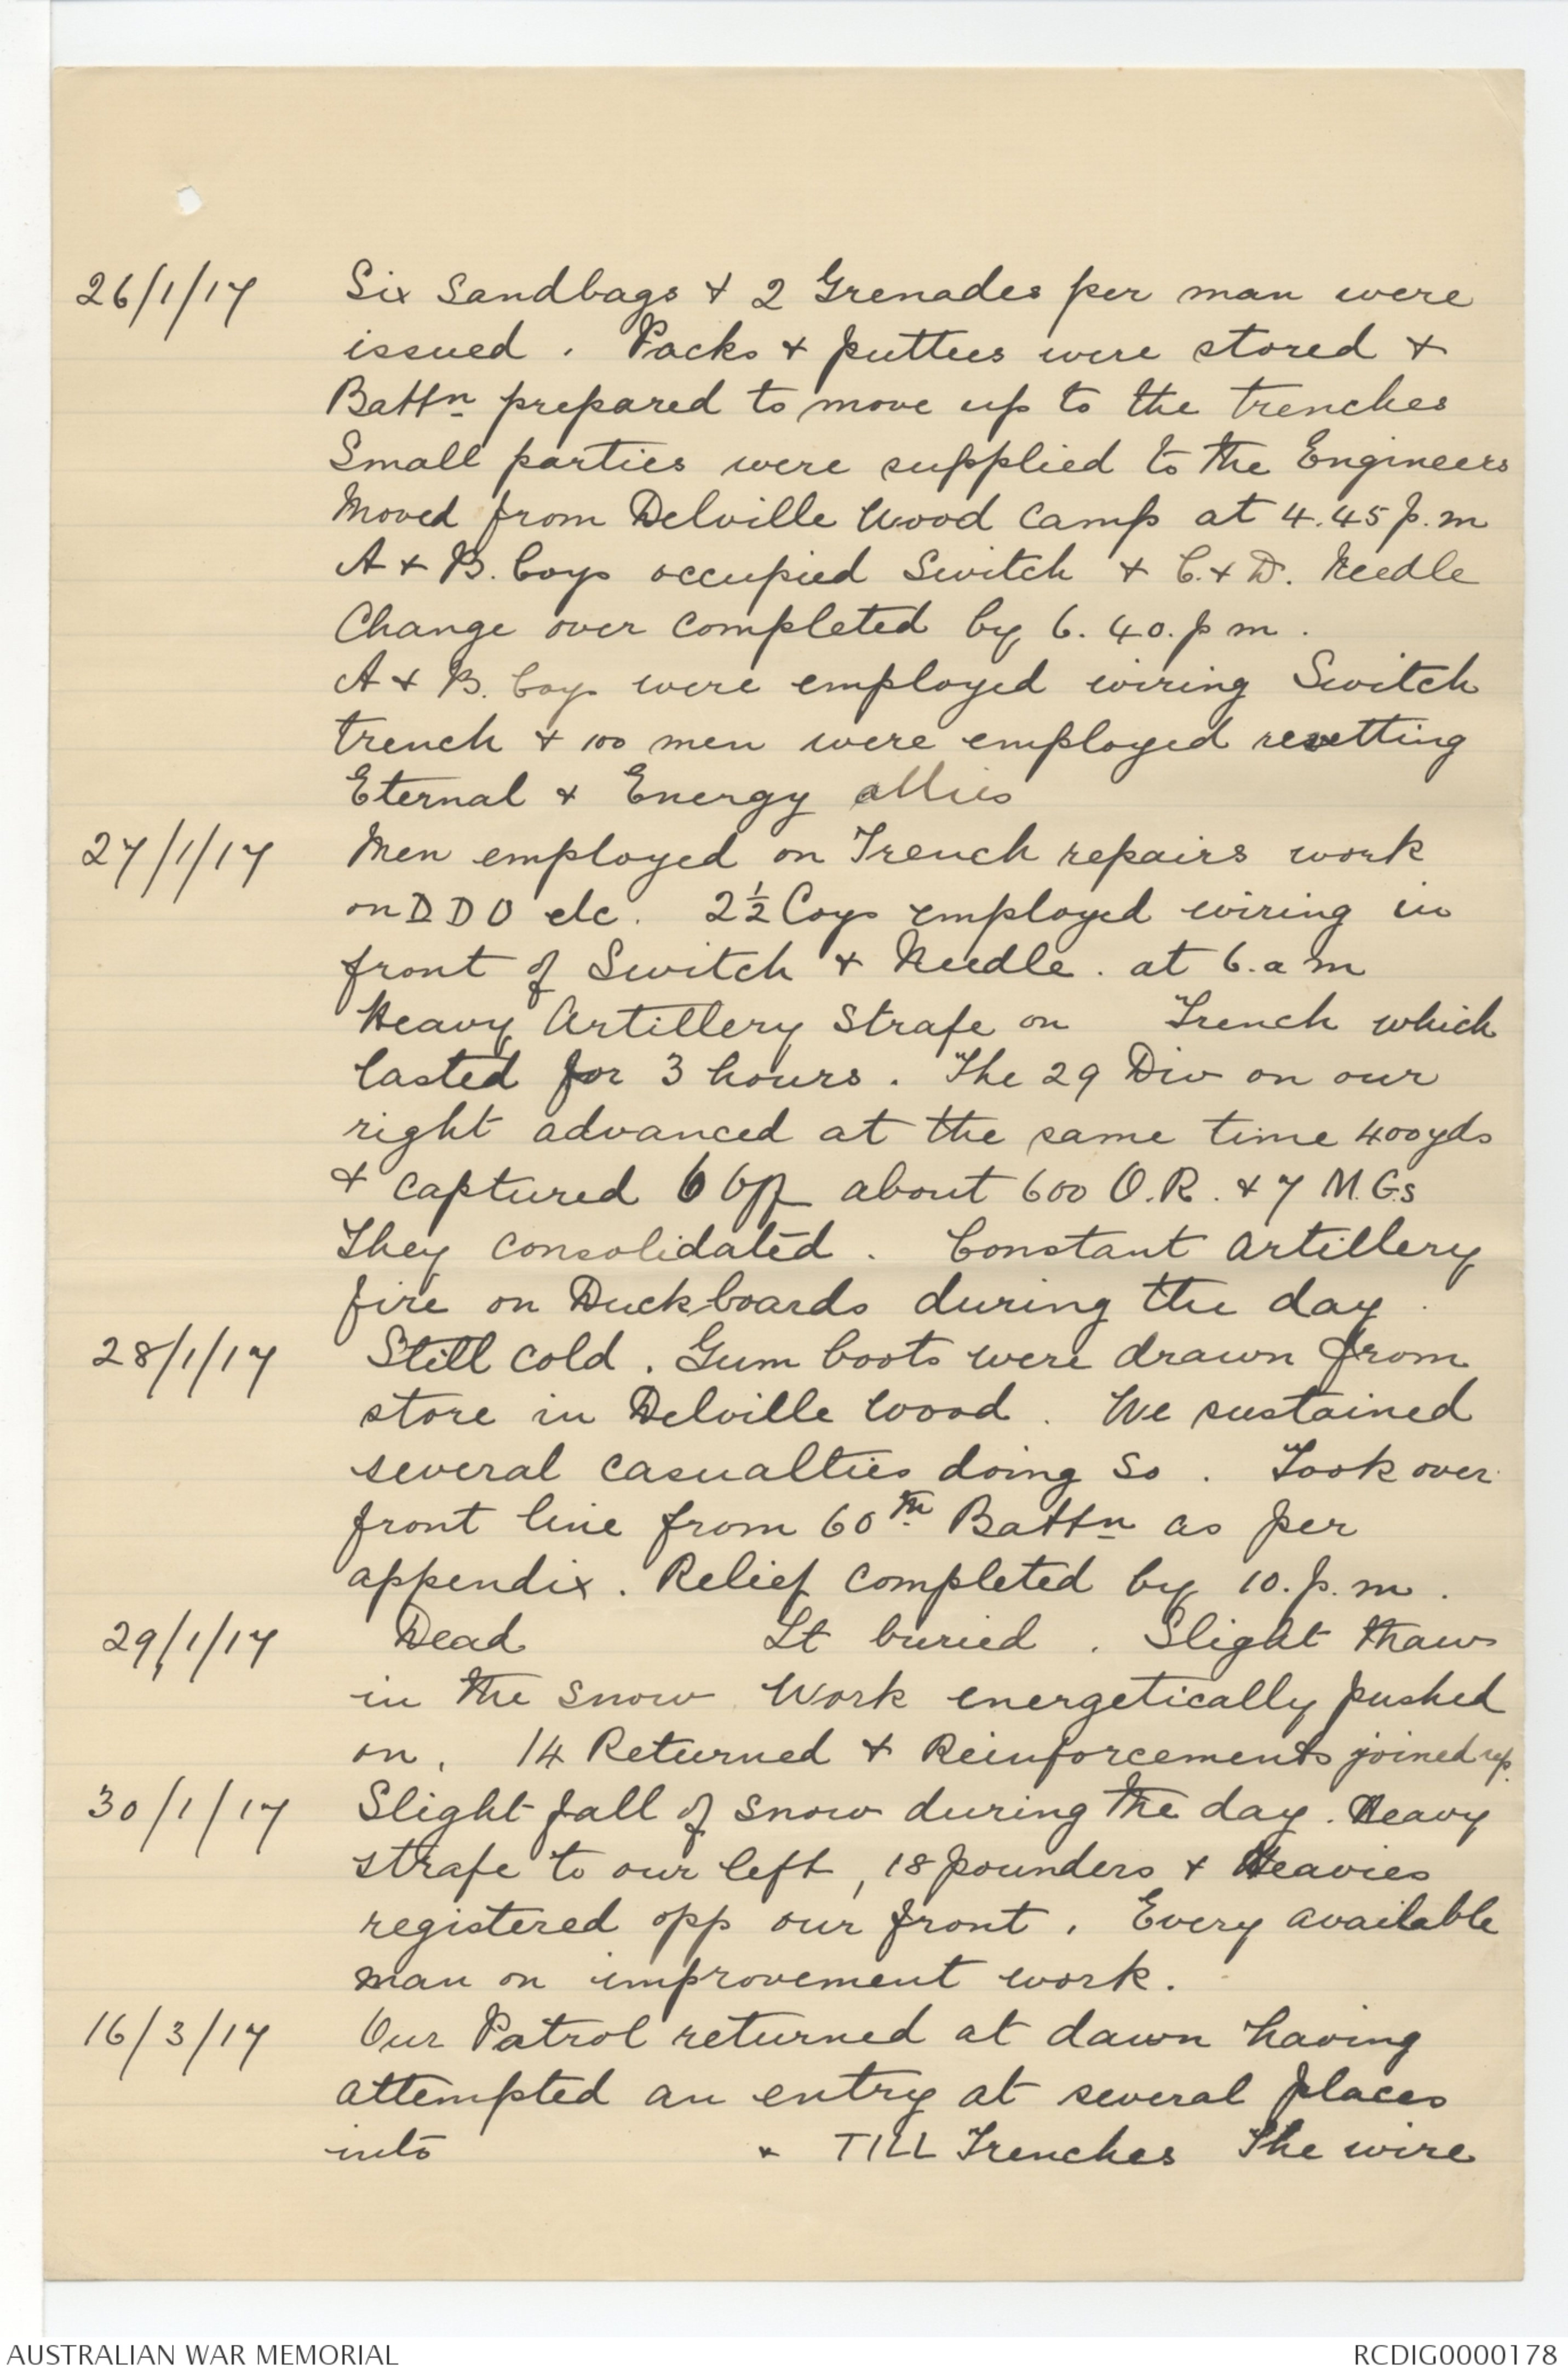 26/1/17 Six Sandbags + 2 Grenades per man were
issued. Packs + puttees were stored +
Battn prepared to move up to the trenches
Small parties were supplied to the Engineers
Moved from Delville Wood Camp at 4.45 p.m
A + B. Coys occupied Switch + C. + D. Needle
Change over completed by 6.40. p m.
A + B. Coys were employed wiring Switch
trench + 100 men were employed revetting
Eternal + Energy allies
27/1/17 Men employed on Trench repairs work
on D D O etc. 2½ Coys employed wiring in
front of Switch + Needle. at 6. a m
Heavy Artillery Strafe on Trench which
lasted for 3 hours. The 29 Div on our
right advanced at the same time 400yds
+ captured 6 Off about 600 O.R. + 7 M.Gs
They consolidated. Constant artillery
fire on Duckboards during the day.
28/1/17 Still cold. Gum boots were drawn from
store in Delville Wood. We sustained
several casualties doing so. Took over
front line from 60th Battn as per
appendix. Relief completed by 10. p. m.
29/1/17 Dead Lt buried. Slight thaw
in the snow Work energetically pushed
on. 14 Returned + Reinforcements joined up.
30/1/17 Slight fall of snow during the day. Heavy
strafe to our left, 18 pounders + Heavies
registered opp our front. Every available
man on improvement work.
16/3/17 Our Patrol returned at dawn having
attempted an entry at several places
into + TILL Trenches The wire
AUSTRALIAN WAR MEMORIAL
RCDIG0000178